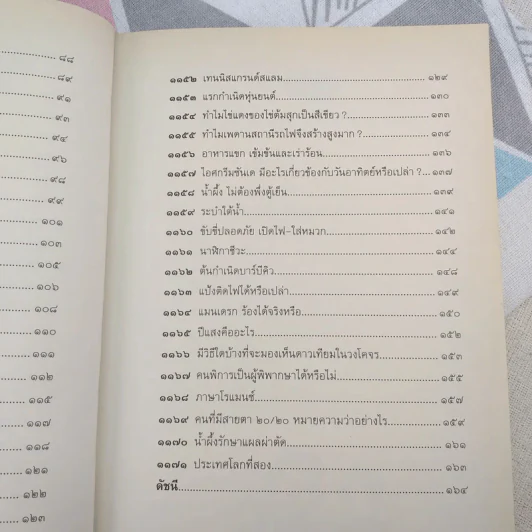 ๘๘
๘๙
๙๑
๙๓
๙๔
๙๖
๙๘
๙๙
๑๐๑
๑๐๓
๑๐๕
๑๐๖
๑๐๘
๑๑๐
๑๑๑
๑๑๒
๑๑๕
๑๑๗
๑๑๘
๑๒๑
๑๒๒
๑๒๓
๑๑๕๒ เทนนิสแกรนด์สแลม ๑๒๙
๑๑๕๓ แรกกำเนิดหุ่นยนต์ ๑๓๐
๑๑๕๔ ทำไมไข่แดงของไข่ต้มสุกเป็นสีเขียว ? ๑๓๓
๑๑๕๕ ทำไมเพดานสถานีรถไฟจึงสร้างสูงมาก ? ๑๓๔
๑๑๕๖ อาหารแขก เข้มข้นและเร่าร้อน ๑๓๖
๑๑๕๗ ไอศกรีมซันเด มีอะไรเกี่ยวข้องกับวันอาทิตย์หรือเปล่า ? ๑๓๗
๑๑๕๘ น้ำผึ้ง ไม่ต้องพึ่งตู้เย็น ๑๓๙
๑๑๕๙ ระบำใต้น้ำ ๑๔๑
๑๑๖๐ ขับขี่ปลอดภัย เปิดไฟ-ใส่หมวก ๑๔๒
๑๑๖๑ นาฬิกาชีวะ ๑๔๔
๑๑๖๒ ต้นกำเนิดบาร์บีคิว ๑๔๘
๑๑๖๓ แป้งติดไฟได้หรือเปล่า ๑๔๙
๑๑๖๔ แมนเดรก ร้องได้จริงหรือ ๑๕๐
๑๑๖๕ ปีแสงคืออะไร ๑๕๒
๑๑๖๖ มีวิธีใดบ้างที่จะมองเห็นดาวเทียมในวงโคจร ๑๕๓
๑๑๖๗ คนพิการเป็นผู้พิพากษาได้หรือไม่ ๑๕๕
๑๑๖๘ ภาษาโรแมนซ์ ๑๕๗
๑๑๖๙ คนที่มีสายตา ๒๐/๒๐ หมายความว่าอย่างไร ๑๕๙
๑๑๗๐ น้ำผึ้งรักษาแผลผ่าตัด ๑๖๑
๑๑๗๑ ประเทศโลกที่สอง ๑๖๓
ดัชนี ๑๖๔